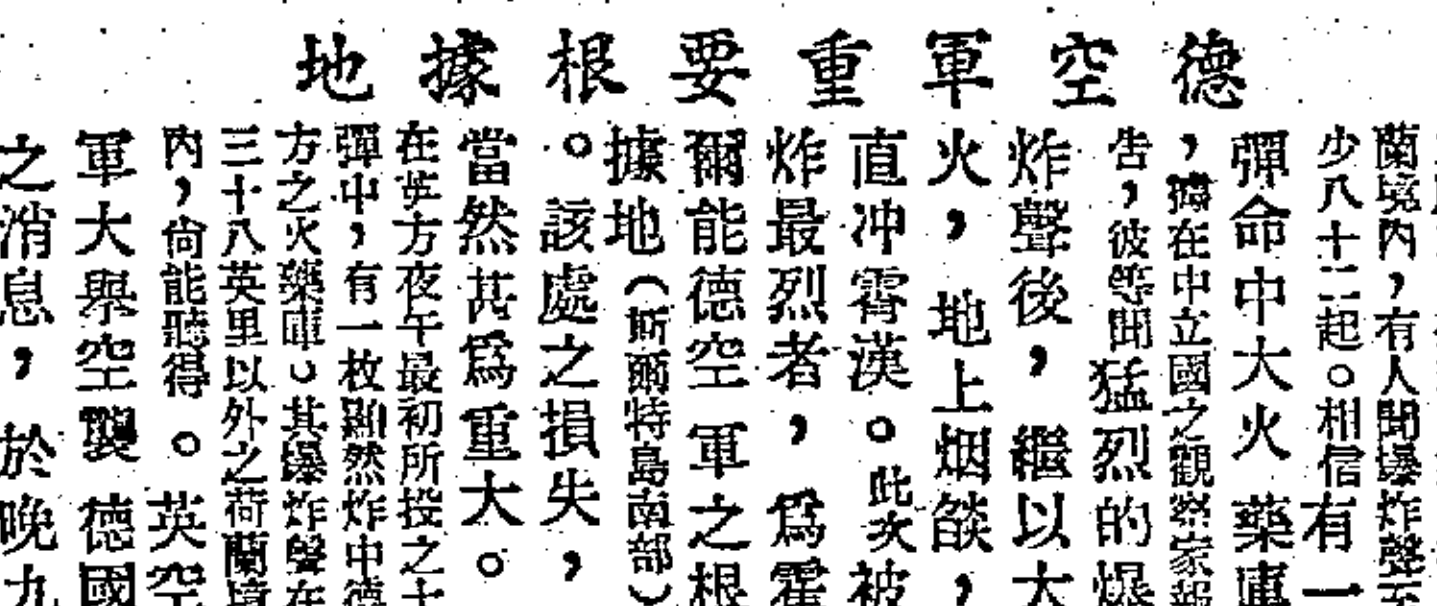 德空軍重要根據地
蘭境內，有人聞爆炸聲至
少八十二起。相信有一
彈命中大火藥庫
，據在中立國之觀察家報
告，彼等聞猛烈的爆
炸聲後，繼以大
火，地上烟燄，
直冲霄漢。此次被
炸最烈者，爲霍
爾能德空軍之根
據地（斯爾特島南部）
。該處之損失，
當然甚爲重大。
在英方夜午最初所投之十
彈中，有一枚顯然炸中德
方之火藥庫。其爆炸聲在
三十八英里以外之荷蘭境
內，尙能聽得。英空
軍大舉空襲德國
之消息，於晚九